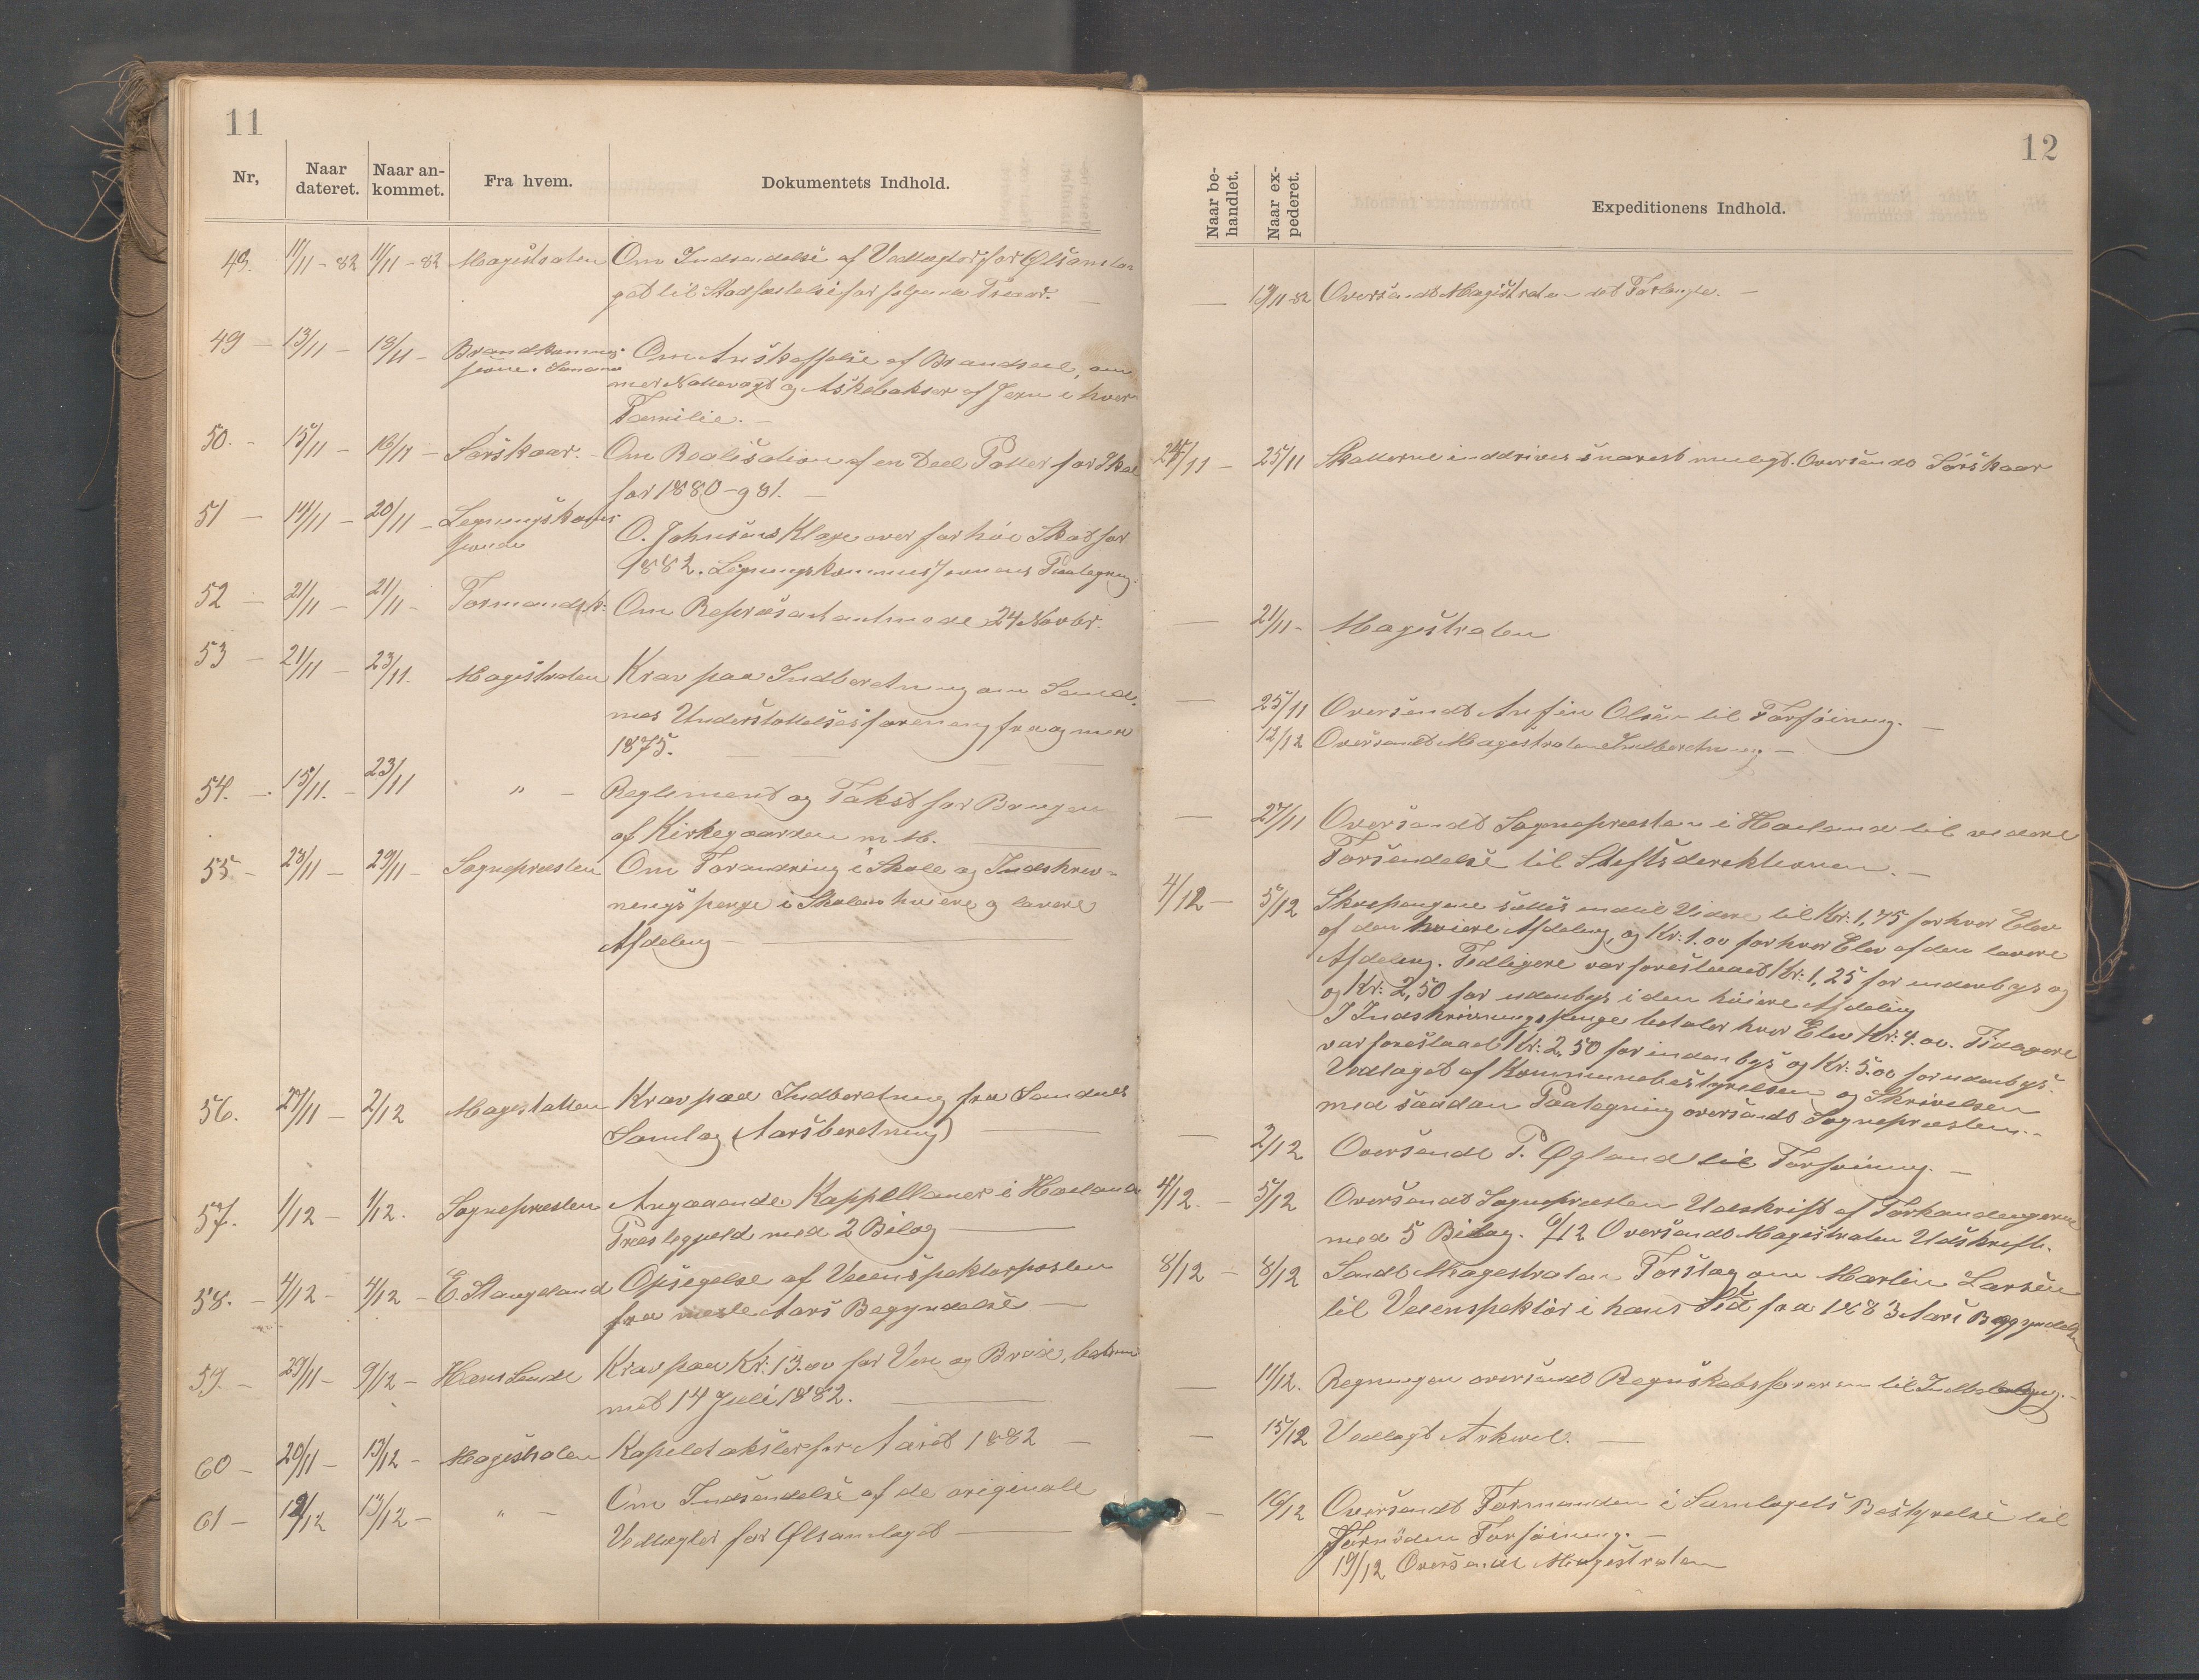 11
Nr,
Naar dateret.
Naar ankommet.
Fra hvem.
Dokumentets Indhold.
48. 11/11 - 82 11/11 - 82 Magistraten Om Indsendelse af Vedtægter for Ølsamla-
get til Stadfæstelse for følgende Treaar. —
49 — 13/11 — 13/11 — Brandkommis- Om Anskaffelse af Brandseil, om
sionen
mer Nattevagt og Askebakser af Jern i hver
Familie. —
50. - 15/11 — 16/11 — Sørskaar. - Om Realisation af en Deel Panter for Skat
for 1880-g 81. —
51 — 14/11 — 20/11 — Ligningskomis O. Johnsens Klage over for høi Skat for
sionen
1882. Ligningskommissionens Paategning.
52 — 21/11 — 21/11 - Formandsk. Om Repræsentantmøde 24 Novbr.
53 — 21/11 — 23/11. Magistraten Krav paa Indberetning om Sand-
næs Understøttelsesforening fra og med
1875. —
54. — 15/11. — 23/11 " — Reglement og Takst for Brugen
af Kirkegaarden m.th.
55 — 28/11 — 29/11 — Sognepresten Om Forandring i Skole og Indskriv-
nings penge i Skolens høiere og lavere
Afdeling —
56. 27/11 — 2/12 Magistraten Krav paa Indberetning fra Sandnes
Samlag (Aarsberetning) —
57. 1/12 — 1/12. Sognepresten Angaaende Kappellanens i Høiland
Præstegjeld med 2 Bilag —
58. — 4/12 — 4/12 — E. Stangeland Opsigelse af Veiinspektørposten
fra næste Aars Begyndelse —
59. — 29/11 — 9/12 — Hans Lunde Krav paa Kr: 13.00 for Ven og Brød,
met 14 Juli 1882. —
60 — 20/11 — 13/12 — Magistraten Kapeltakster for Aaret 1882 —
61 — 12/12 13/12 — " — Om Indsendelse af de originale
Vedtægter for Ølsamlaget —
12
Naar behandlet.
Naar expederet.
Expeditionens Indhold.
— 13/11 82 Oversendt Magistraten det Forlangte. —
25/11 — 25/11 Skatterne inddrives snarest muligt. Oversendt Sørskaar
— 21/11 - Magistraten
— 25/11 Oversendt Anfin Olsen til Forføining. —
12/12 Oversendt Magistraten Indberetning. —
— 27/11 Oversendt Sognepresten i Høiland til videre
Forsendelse til Stiftsdirektionen. —
4/12 — 5/12 Skolepengene sættes indtil Videre til Kr: 1,75 for hver Elev
af den høiere Afdeling, og Kr: 1.00 for hver Elev af den lavere
Afdeling. Tidligere var foreslaaet Kr: 1,25 for indenbys og
og Kr: 2,50 for udenbys i den høiere Afdeling
I Indskrivningspenge betaler hver Elev Kr: 4.00. Tidligere
var foreslaaet Kr: 2,50 for indenbys og Kr: 5.00 for udenbys.
Vedtaget af Kommunebestyrelsen og Skrivelsen
med saadan Paategning oversendt Sognepresten. -
— 2/12 Oversendt P. Øgland til Forføining. —
4/12. - 5/12 Oversendt Sognepresten Udskrift af Forhandlingerne
med 5 Bilag. 6/12 Oversendt Magistraten Udskrift.
8/12 — 8/12 Sendt Magistraten Forslag om Martin Larsen
til Veiinspektør i hans Sted fra 1883 Aars Begyndelse
— 11/12. Regningen oversendt Regnskabsføreren til Indbetaling. -
— 15/12 Vedlagt Arkivet. —
— 16/12 Oversendt Formanden i Samlagets Bestyrelse til
Fornøden Forføining. —
19/12 Oversendt Magistraten